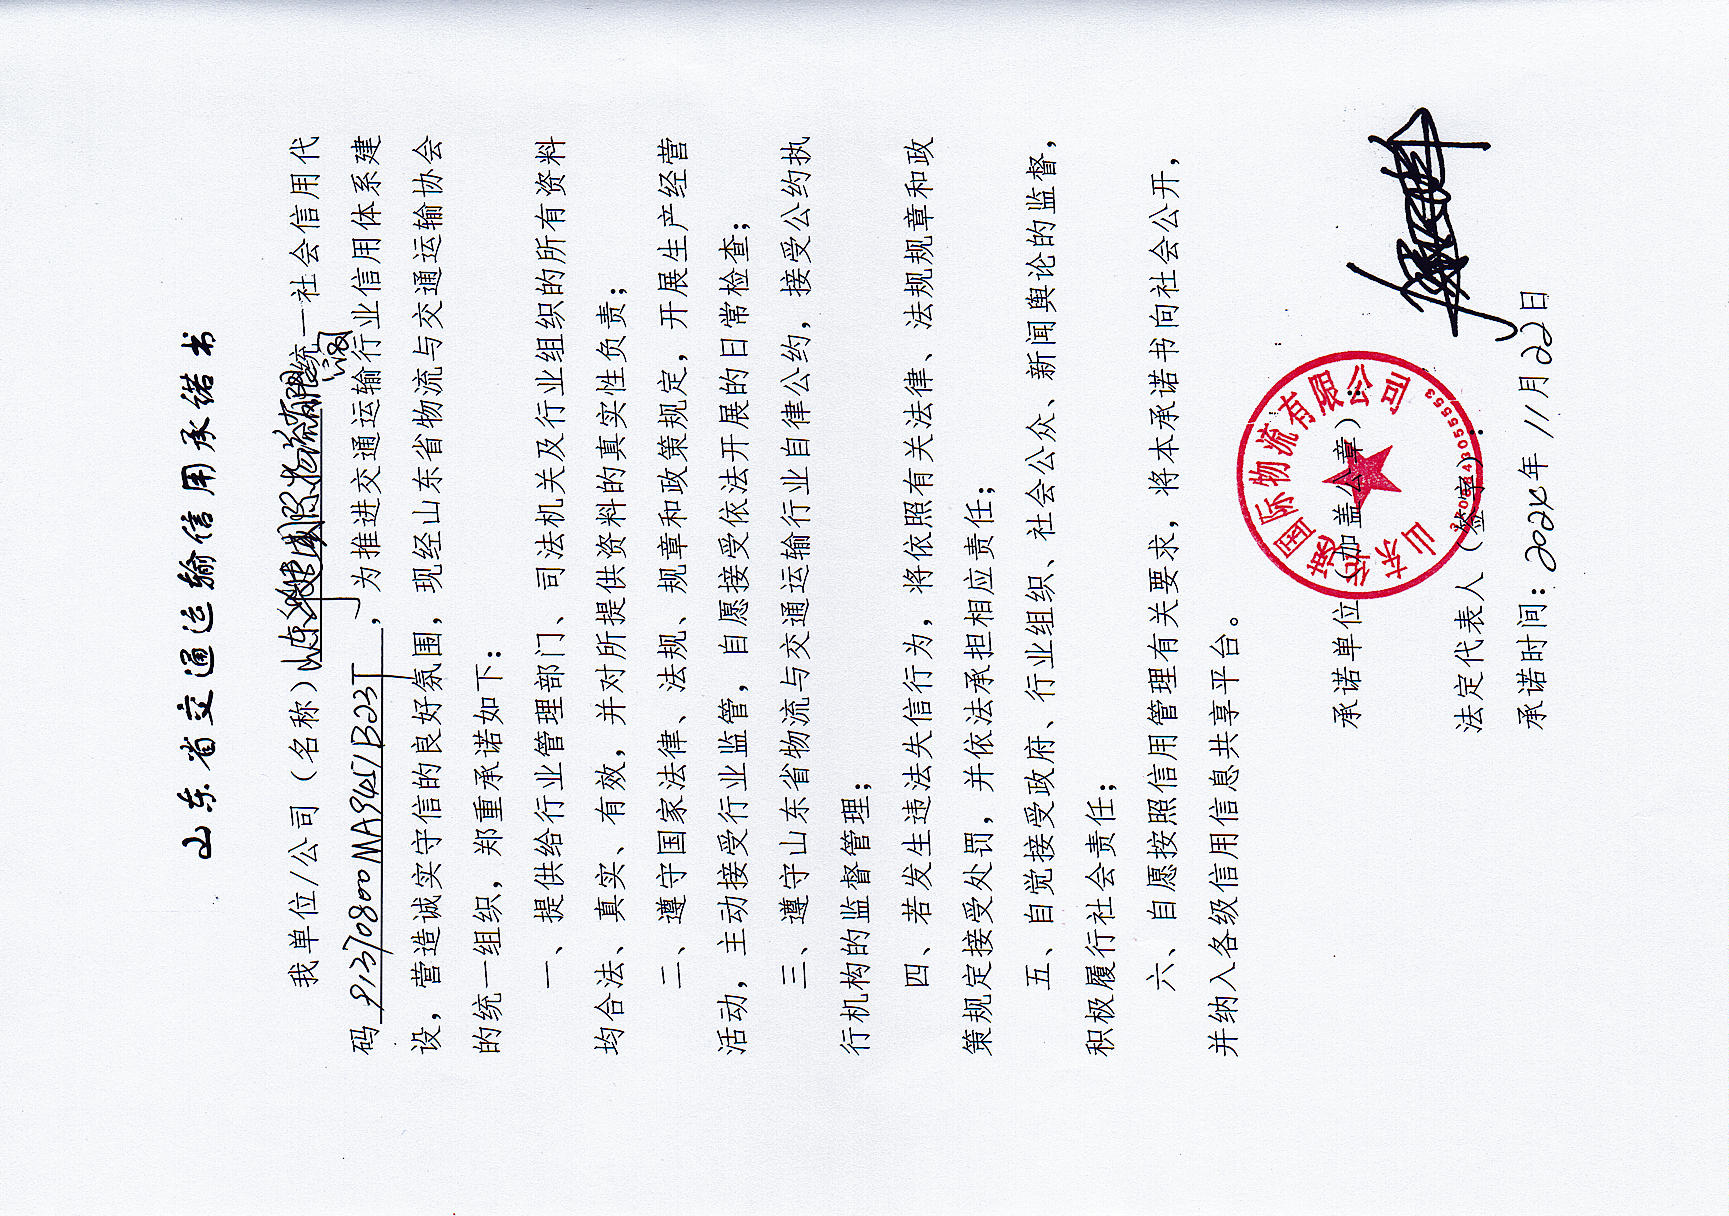 山东省交通运输信用承诺书
我单位/公司（名称）山东 国际物流有限公司统一社会信用代
码 91370800MA945JB23T ，为推进交通运输行业信用体系建
设，营造诚实守信的良好氛围，现经山东省物流与交通运输协会
的统一组织，郑重承诺如下：
一、提供给行业管理部门、司法机关及行业组织的所有资料
均合法、真实、有效，并对所提供资料的真实性负责；
二、遵守国家法律、法规、规章和政策规定，开展生产经营
活动，主动接受行业监管，自愿接受依法开展的日常检查；
三、遵守山东省物流与交通运输行业自律公约，接受公约执
行机构的监督管理；
四、若发生违法失信行为，将依照有关法律、法规规章和政
策规定接受处罚，并依法承担相应责任；
五、自觉接受政府、行业组织、社会公众、新闻舆论的监督，
积极履行社会责任；
六、自愿按照信用管理有关要求，将本承诺书向社会公开，
并纳入各级信用信息共享平台。
承诺单位（加盖公章）：
山东 国际物流有限公司
法定代表人（签字）：
承诺时间：2024年 11月22日